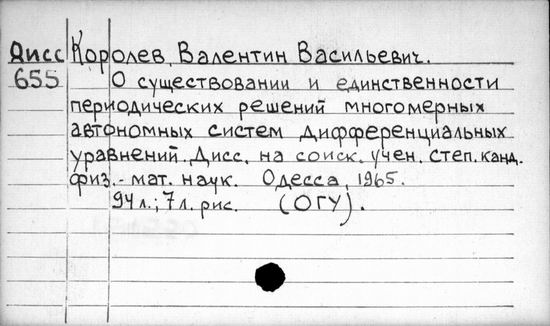 Дисс Королев, Валентин Васильевич.
655 О существовании и единственности
периодических решений многомерных
автономных систем дифференциальных
уравнений. Дисс. на соиск. учен. степ. канд.
физ.-мат. наук. Одесса, 1965.
94 л.; 7 л. рис. (ОГУ).